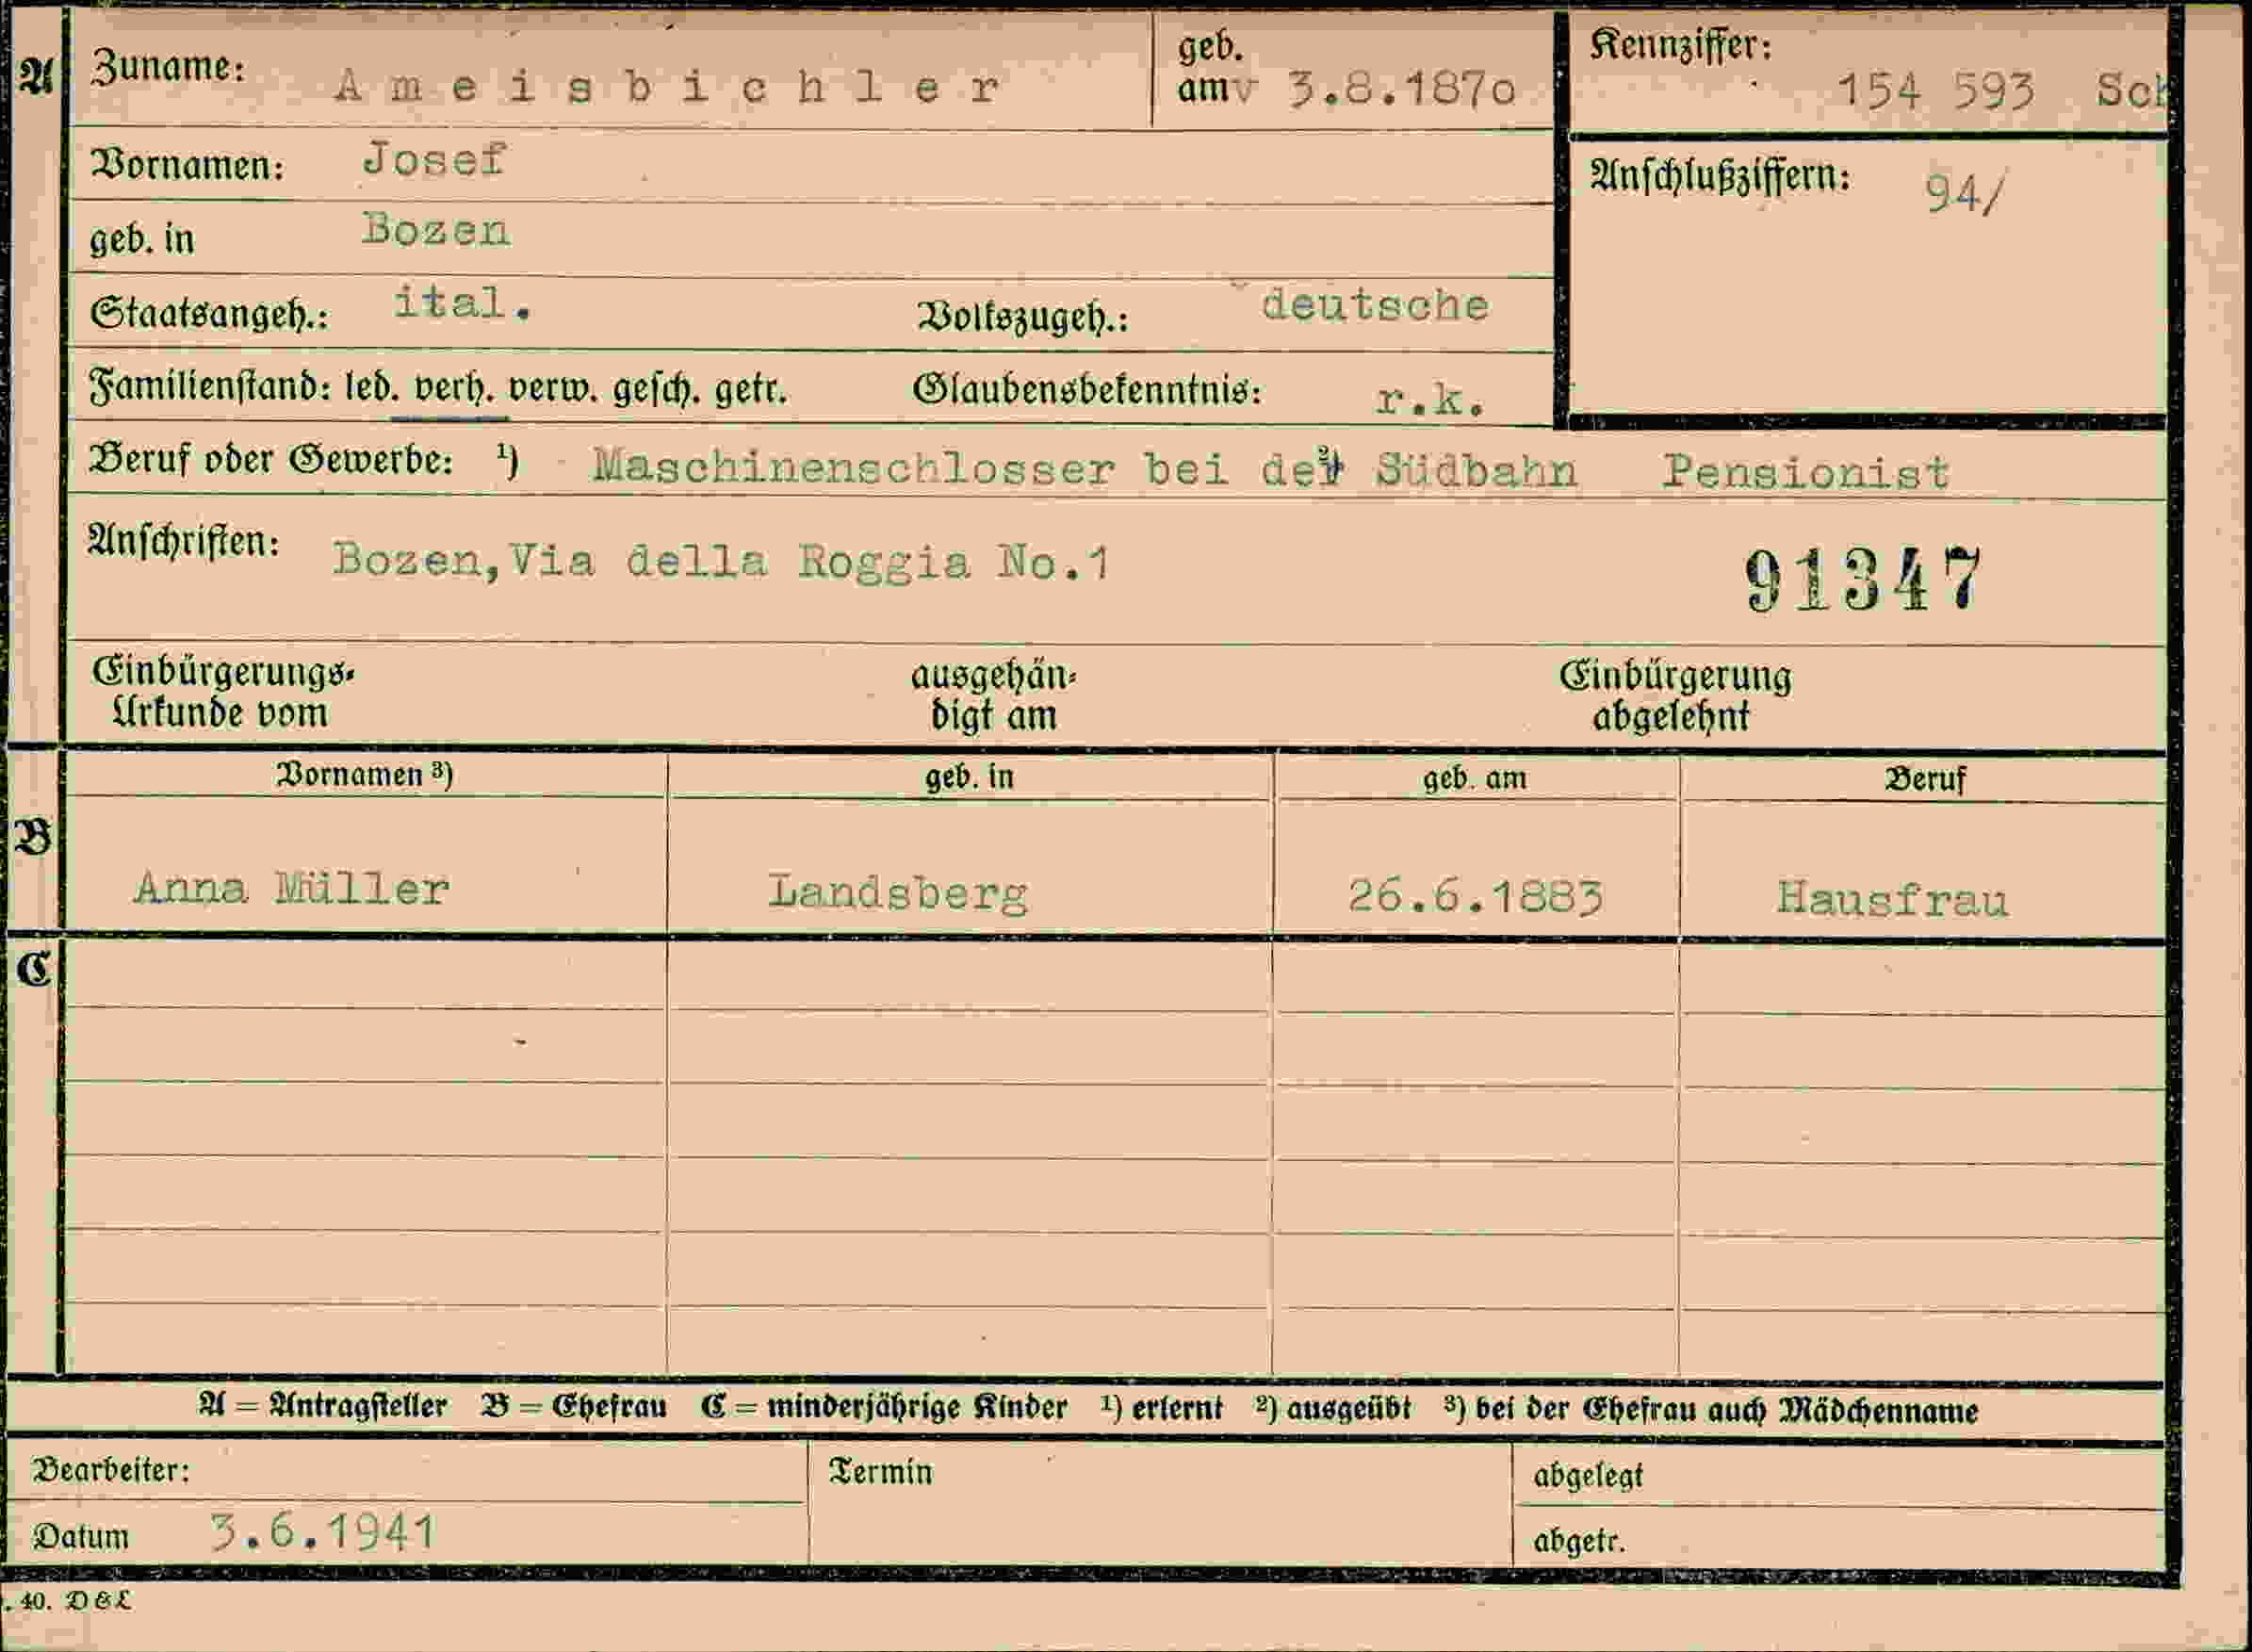 A Zuname: Ameisbichler geb. am 3.8.1870 Kennziffer: 154 593 Sch
Vornamen: Josef Anschlußziffern: 94/
geb. in Bozen
Staatsangeh.: ital. Volkszugeh.: deutsche
Familienstand: led. verh. verw. gesch. getr. Glaubensbekenntnis: r.k.
Beruf oder Gewerbe: ¹) Maschinenschlosser bei der ²) Südbahn Pensionist
Anschriften: Bozen,Via della Roggia No.1 91347
Einbürgerungs- ausgehän- Einbürgerung
Urkunde vom digt am abgelehnt
Vornamen ³) geb. in geb. am Beruf
B
Anna Müller Landsberg 26.6.1883 Hausfrau
C
A = Antragsteller B = Ehefrau C = minderjährige Kinder ¹) erlernt ²) ausgeübt ³) bei der Ehefrau auch Mädchenname
Bearbeiter: Termin abgelegt
Datum 3.6.1941 abgetr.
. 40. D & L